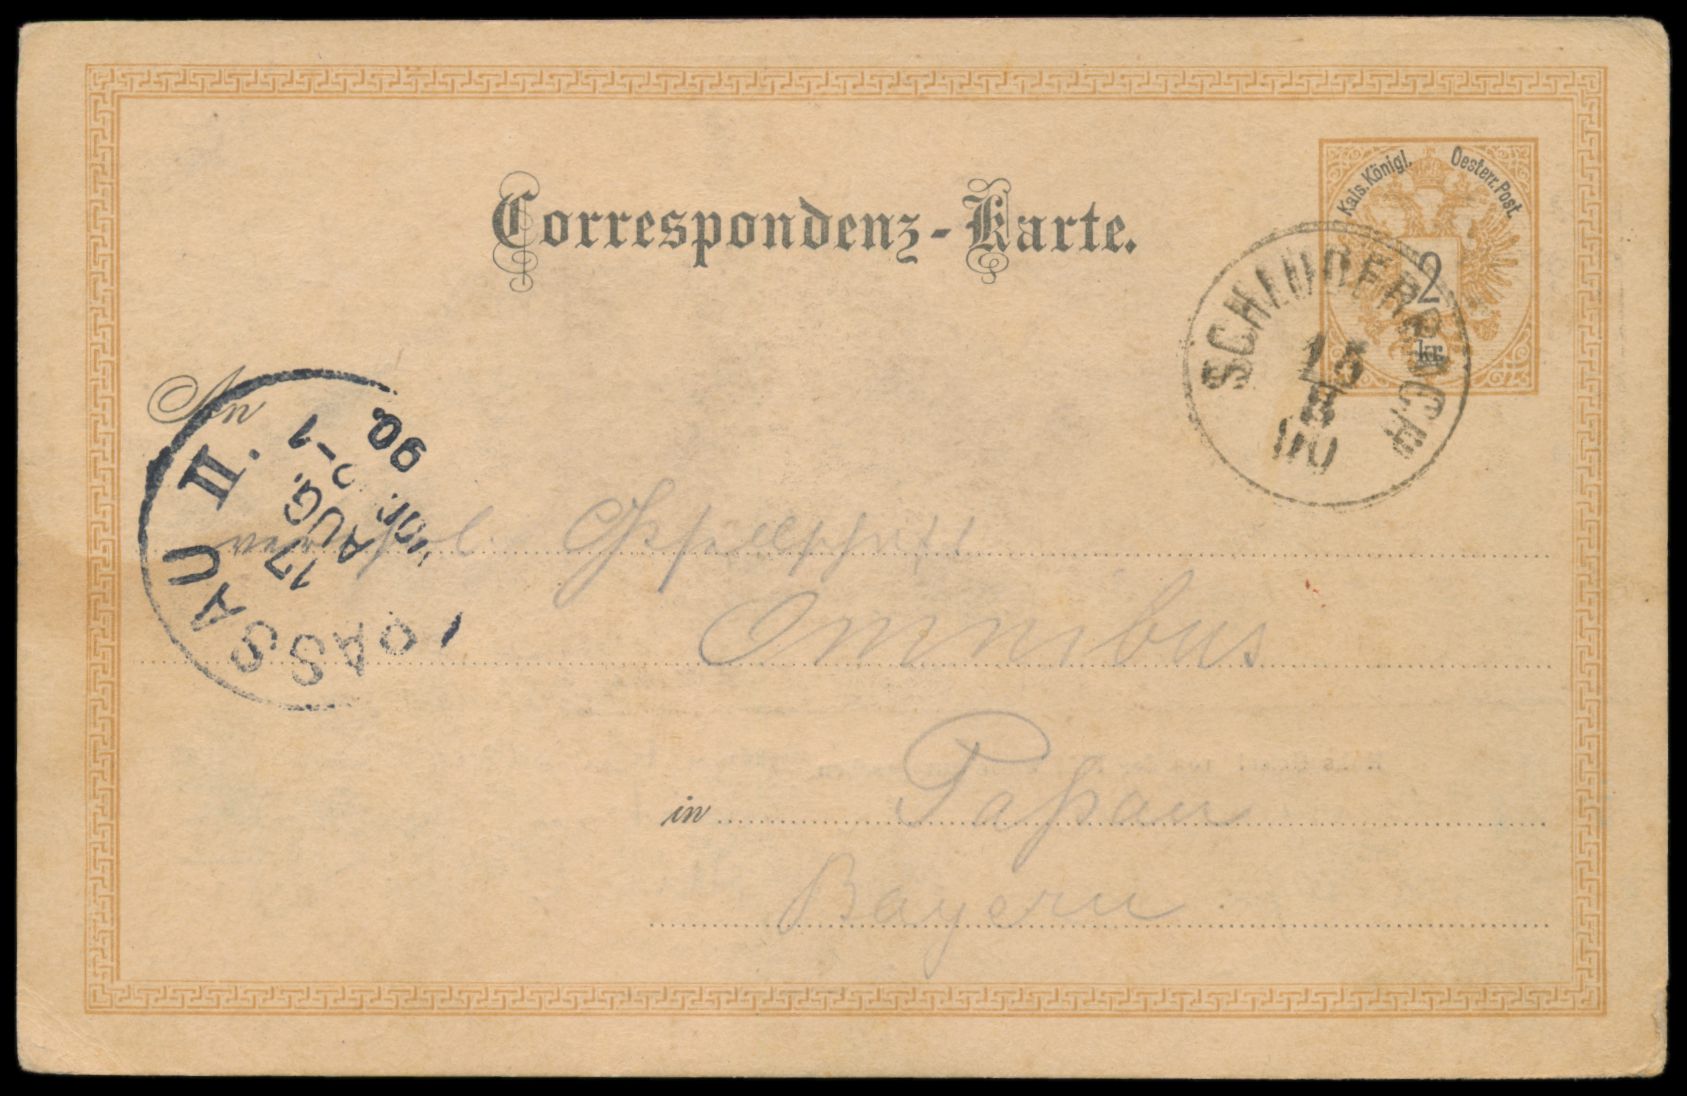 Correspondenz-Karte.
Kais. Königl. Oesterr. Post.
2
kr.
15
8
90
An
PASSAU II.
17
AUG.
VOR.
90.
Gesellschaft
Omnibus
in Passau
Bayern